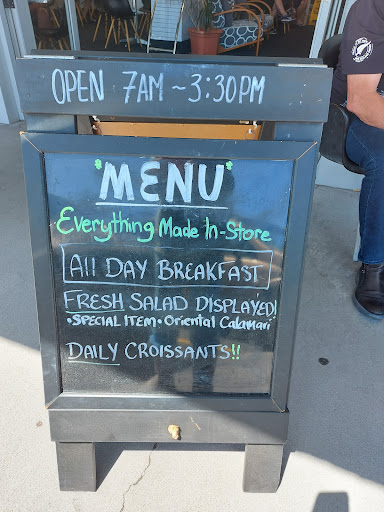 OPEN 7AM ~ 3:30PM
"MENU"
Everything Made In-Store
All DAY BREAKFAST
FRESH SALAD DISPLAYED!
•SPECIAL ITEM• Oriental Calamari
DAILY CROISSANTS!!